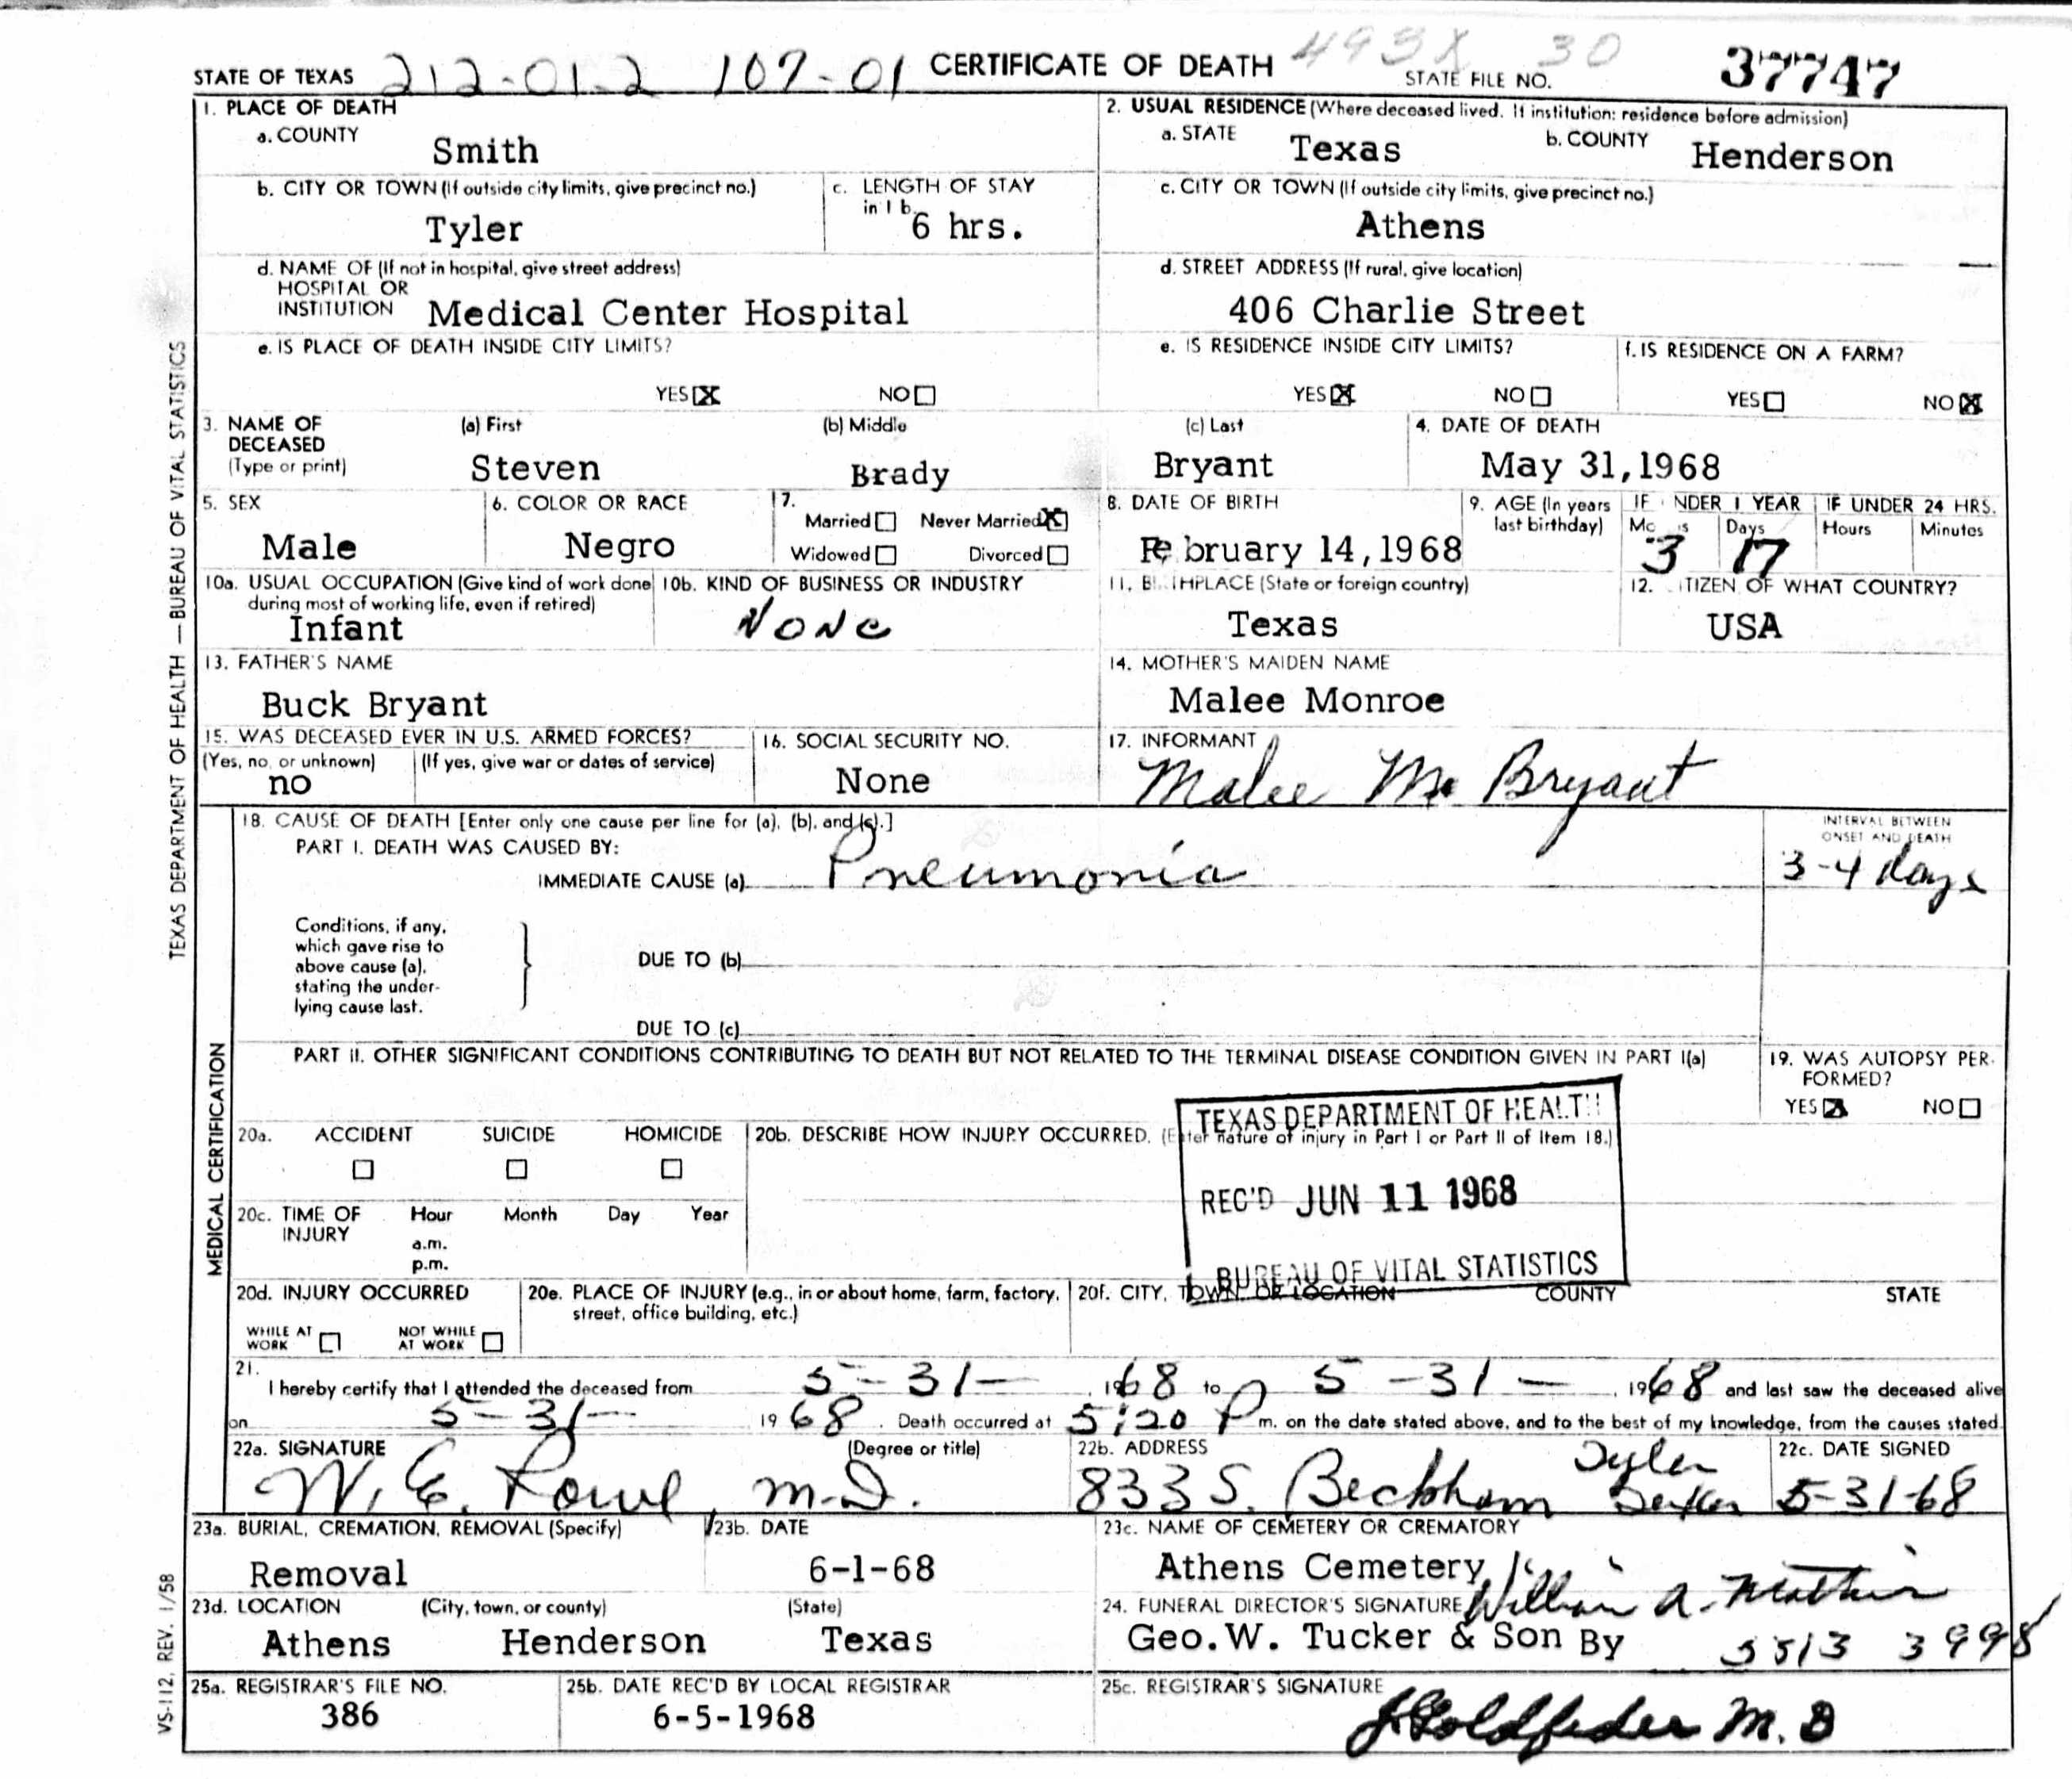 STATE OF TEXAS 212-01.2 107-01 CERTIFICATE OF DEATH 493X 30 STATE FILE NO. 37747
1. PLACE OF DEATH
a. COUNTY
Smith
2. USUAL RESIDENCE (Where deceased lived. If institution: residence before admission)
a. STATE Texas b. COUNTY Henderson
b. CITY OR TOWN (If outside city limits, give precinct no.)
Tyler
c. LENGTH OF STAY
in 1 b.
6 hrs.
c. CITY OR TOWN (If outside city limits, give precinct no.)
Athens
d. NAME OF (If not in hospital, give street address)
HOSPITAL OR
INSTITUTION Medical Center Hospital
d. STREET ADDRESS (If rural, give location)
406 Charlie Street
e. IS PLACE OF DEATH INSIDE CITY LIMITS?
YES X NO
e. IS RESIDENCE INSIDE CITY LIMITS?
YES X NO
f. IS RESIDENCE ON A FARM?
YES NO X
3. NAME OF
DECEASED
(Type or print)
(a) First (b) Middle (c) Last
Steven Brady Bryant
4. DATE OF DEATH
May 31,1968
5. SEX
Male
6. COLOR OR RACE
Negro
7.
Married Never Married X
Widowed Divorced
8. DATE OF BIRTH
February 14,1968
9. AGE (In years
last birthday)
IF NDER 1 YEAR IF UNDER 24 HRS.
Mo s Days Hours Minutes
3 17
10a. USUAL OCCUPATION (Give kind of work done
during most of working life, even if retired)
Infant
10b. KIND OF BUSINESS OR INDUSTRY
None
11. B THPLACE (State or foreign country)
Texas
12. ITIZEN OF WHAT COUNTRY?
USA
13. FATHER'S NAME
Buck Bryant
14. MOTHER'S MAIDEN NAME
Malee Monroe
15. WAS DECEASED EVER IN U.S. ARMED FORCES?
(Yes, no, or unknown) (If yes, give war or dates of service)
no
16. SOCIAL SECURITY NO.
None
17. INFORMANT
Malee M. Bryant
18. CAUSE OF DEATH [Enter only one cause per line for (a), (b), and (c).]
PART I. DEATH WAS CAUSED BY:
IMMEDIATE CAUSE (a) Pneumonia
INTERVAL BETWEEN
ONSET AND DEATH
3-4 days
Conditions, if any,
which gave rise to
above cause (a),
stating the under-
lying cause last.
DUE TO (b)
DUE TO (c)
PART II. OTHER SIGNIFICANT CONDITIONS CONTRIBUTING TO DEATH BUT NOT RELATED TO THE TERMINAL DISEASE CONDITION GIVEN IN PART I(a)
19. WAS AUTOPSY PER-
FORMED?
YES X NO
20a. ACCIDENT SUICIDE HOMICIDE
20b. DESCRIBE HOW INJURY OCCURRED. (Enter nature of injury in Part I or Part II of Item 18.)
TEXAS DEPARTMENT OF HEALTH
REC'D JUN 11 1968
BUREAU OF VITAL STATISTICS
20c. TIME OF
INJURY
Hour Month Day Year
a.m.
p.m.
20d. INJURY OCCURRED
WHILE AT
WORK
NOT WHILE
AT WORK
20e. PLACE OF INJURY (e.g., in or about home, farm, factory,
street, office building, etc.)
20f. CITY, TOWN, OR LOCATION COUNTY STATE
21.
I hereby certify that I attended the deceased from 5-31- , 1968 to 5-31- , 1968 and last saw the deceased alive
on 5-31- 1968. Death occurred at 5:20 P m. on the date stated above, and to the best of my knowledge, from the causes stated.
22a. SIGNATURE (Degree or title)
W. E. Rowe, M.D.
22b. ADDRESS
833 S. Beckham Tyler Texas
22c. DATE SIGNED
5-31-68
23a. BURIAL, CREMATION, REMOVAL (Specify)
Removal
23b. DATE
6-1-68
23c. NAME OF CEMETERY OR CREMATORY
Athens Cemetery
23d. LOCATION (City, town, or county) (State)
Athens Henderson Texas
24. FUNERAL DIRECTOR'S SIGNATURE William A.
Geo.W. Tucker & Son By 5513 3998
25a. REGISTRAR'S FILE NO.
386
25b. DATE REC'D BY LOCAL REGISTRAR
6-5-1968
25c. REGISTRAR'S SIGNATURE
J Goldfeder M.D
TEXAS DEPARTMENT OF HEALTH — BUREAU OF VITAL STATISTICS
MEDICAL CERTIFICATION
VS-112, REV. 1/58